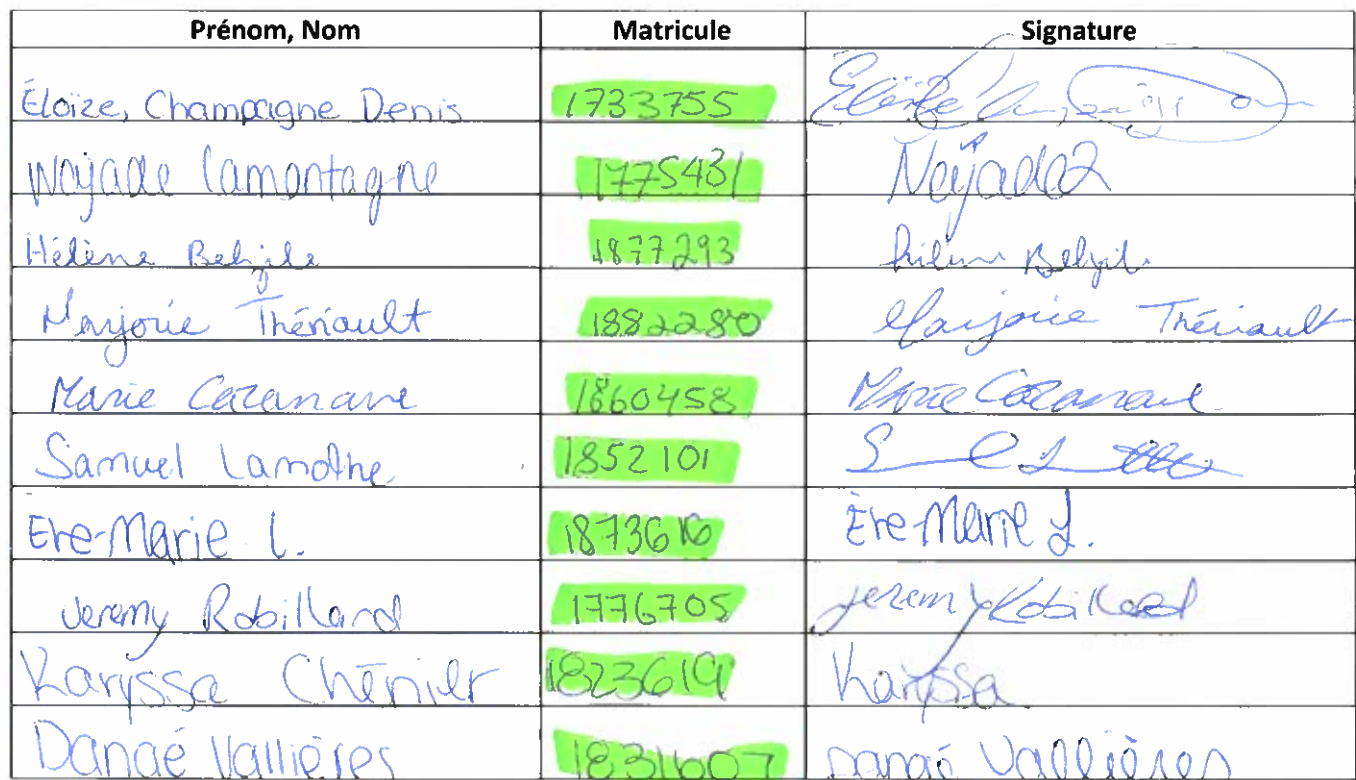 Prénom, Nom Matricule Signature
Éloïze, Champagne Denis 1733755 Éloïze
Nayade Lamontagne 1775431 Nayade
Hélène Belisle 1877293 Hélène Belisle
Marjorie Thériault 1882280 Marjorie Thériault
Marie Cazanave 1860458 Marie Cazanave
Samuel Lamothe 1852101
Eve-Marie L. 1873616 Eve-Marie L.
Jeremy Robillard 1776705 Jeremy Robillard
Karyssa Chénier 1823619 Karyssa
Danaé Vallières 1831607 Danaé Vallières